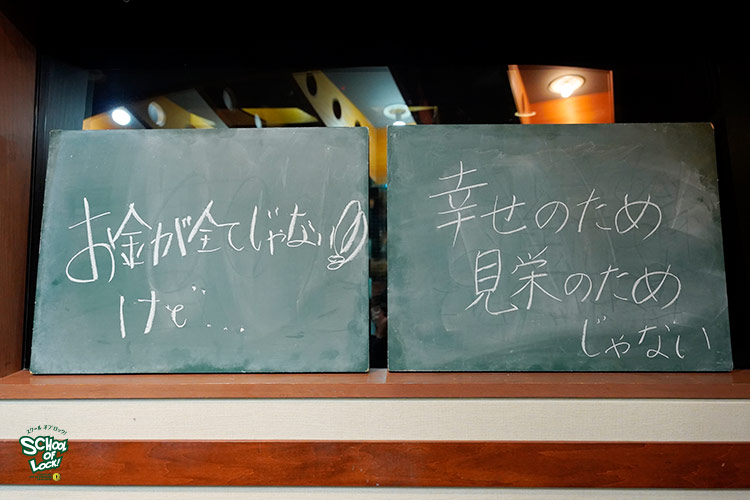 お金が全てじゃない!
けど…
幸せのため
見栄のため
じゃない
スクール オブ ロック!
SCHOOL
OF
LOCK!